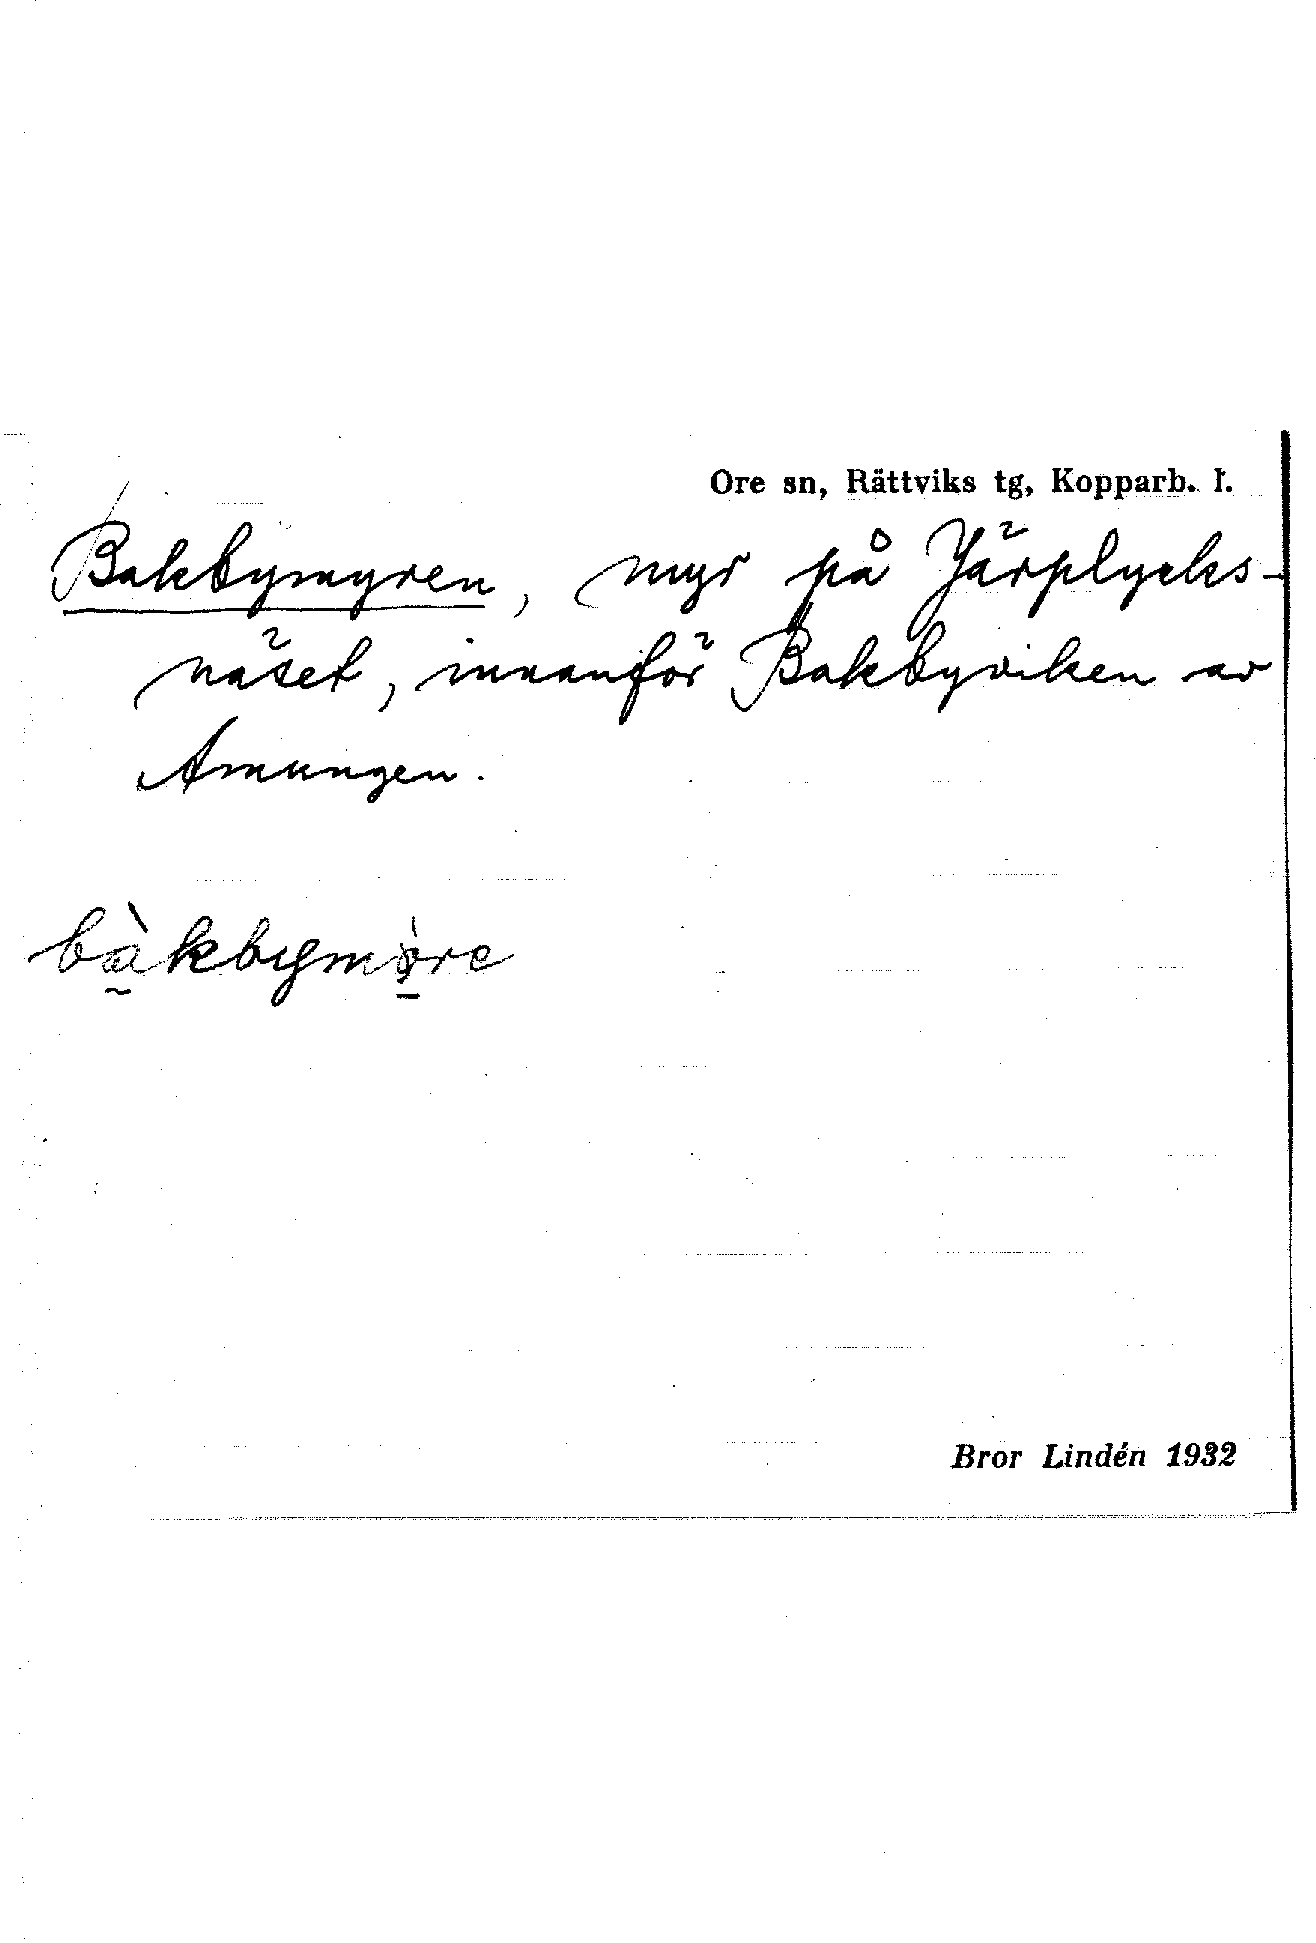 Ore sn, Rättviks tg, Kopparb. l.
Bakbymyren, myr på Järplycks-
näset, innanför Bakbyviken av
Amungen.
bàkbymø̀re
Bror Lindén 1932